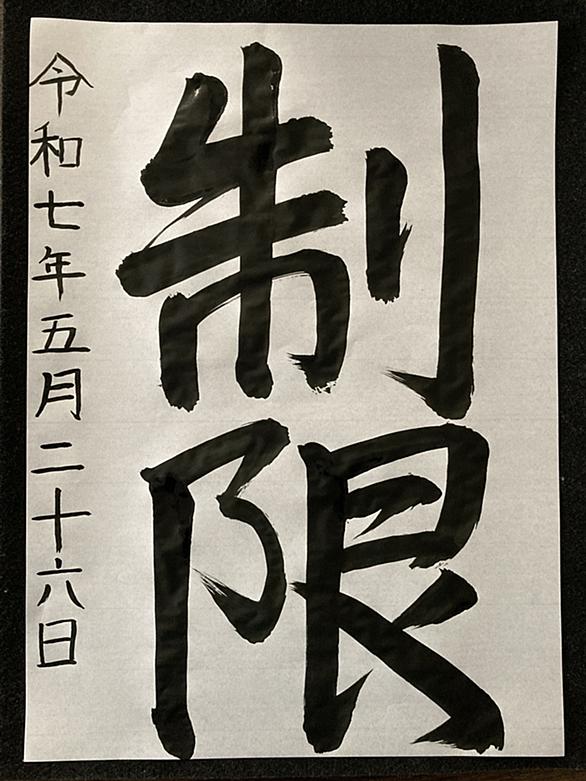 制限
令和七年五月二十六日